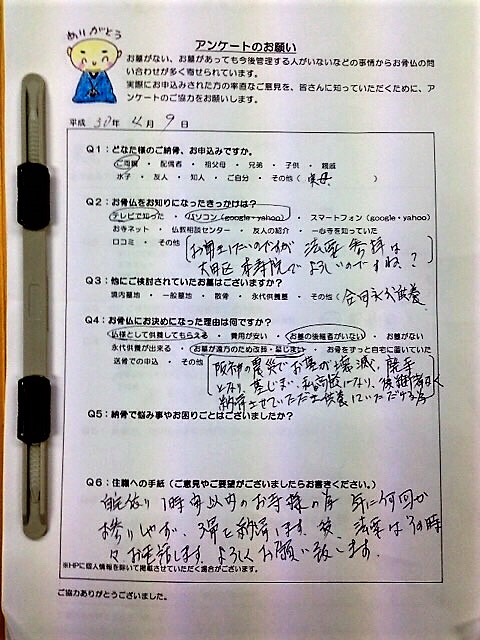 ありがとう
アンケートのお願い
お墓がない、お墓があっても今後管理する人がいないなどの事情からお骨仏の問
い合わせが多く寄せられています。
実際にお申込みされた方の率直なご意見を、皆さんに知っていただくために、ア
ンケートのご協力をお願いします。
平成 30年 4月 9日
Q1：どなた様のご納骨、お申込みですか。
ご両親 ・ 配偶者 ・ 祖父母 ・ 兄弟 ・ 子供 ・ 親戚
水子 ・ 友人 ・ 知人 ・ ご自分 ・ その他（ 実母 ）
Q2：お骨仏をお知りになったきっかけは？
テレビで知った ・ パソコン（google・yahoo） ・ スマートフォン（google・yahoo）
お寺ネット ・ 仏教相談センター ・ 友人の紹介 ・ 一心寺を知っていた
口コミ ・ その他
お聞きしたいのですが 法要 参拝は
大田区 本寿院でよろしいのですね？
Q3：他にご検討されていたお墓はございますか？
境内墓地 ・ 一般墓地 ・ 散骨 ・ 永代供養墓 ・ その他（合同永代供養
Q4：お骨仏にお決めになった理由は何ですか？
仏様として供養してもらえる ・ 費用が安い ・ お墓の後継者がいない ・ お墓がない
永代供養が出来る ・ お墓が遠方のため改葬・墓じまい ・ お骨をずっと自宅に置いていた
送骨での申込 ・ その他
阪神の震災でお墓が壊滅、
となり、墓じまい、私高齢になり、後継者なく
納骨させていただき供養していただける為
Q5：納骨で悩み事やお困りごとはございましたか？
Q6：住職への手紙（ご意見やご要望がございましたらお書きください。）
自宅より1時間以内のお寺様の為 年に何回か
お参りしやすく
お電話します。よろしくお願い致します。
※HPに個人情報を除いて掲載させていただく場合がございます。
ご協力ありがとうございました。